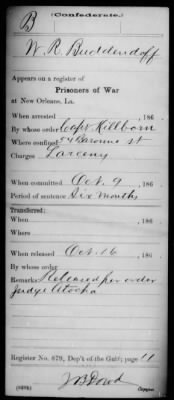 (Confederate.)
B
W. R. Buddendorff
Appears on a register of
Prisoners of War
at New Orleans, La.
When arrested , 186 .
By whose order Capt Killborn
Where confined 54 Baronne St
Charges Larceny
When committed Oct. 9 , 186 .
Period of sentence Six Months
Transferred:
When , 186 .
Where
When released Oct. 16 , 186 .
By whose order
Remarks: Released per order
Judge Atocha
Register No. 679, Dep't of the Gulf; page 11
Copyist.